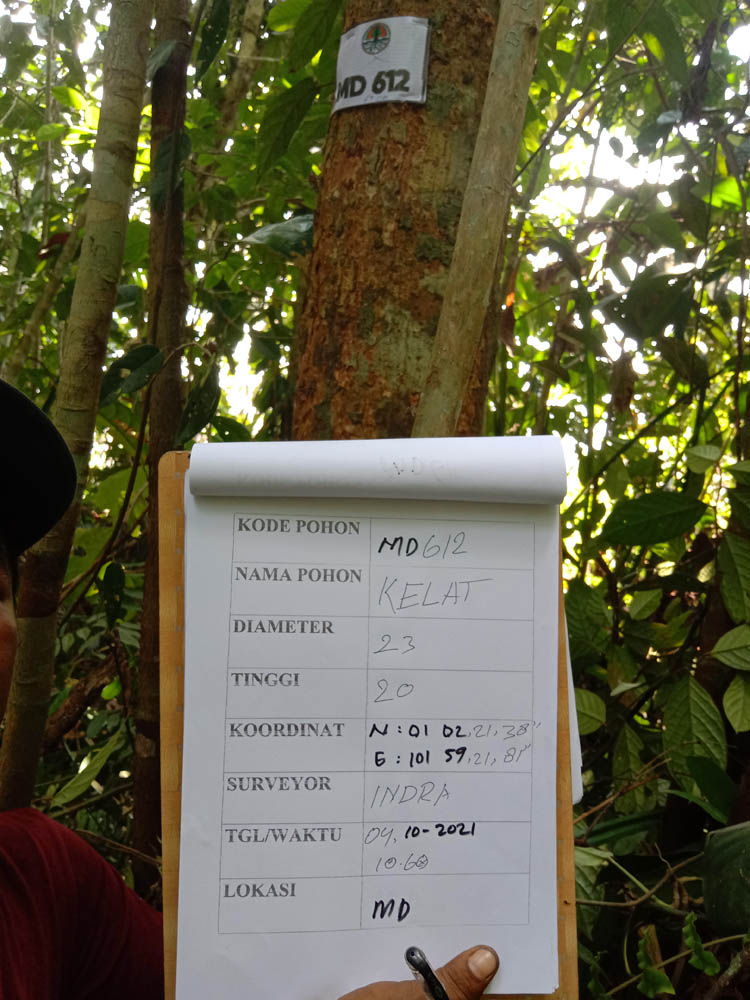 MD 612
KODE POHON MD612
NAMA POHON KELAT
DIAMETER 23
TINGGI 20
KOORDINAT N : 01 02,21,38"
E : 101 59,21,81"
SURVEYOR INDRA
TGL/WAKTU 04, 10-2021
10.60
LOKASI MD